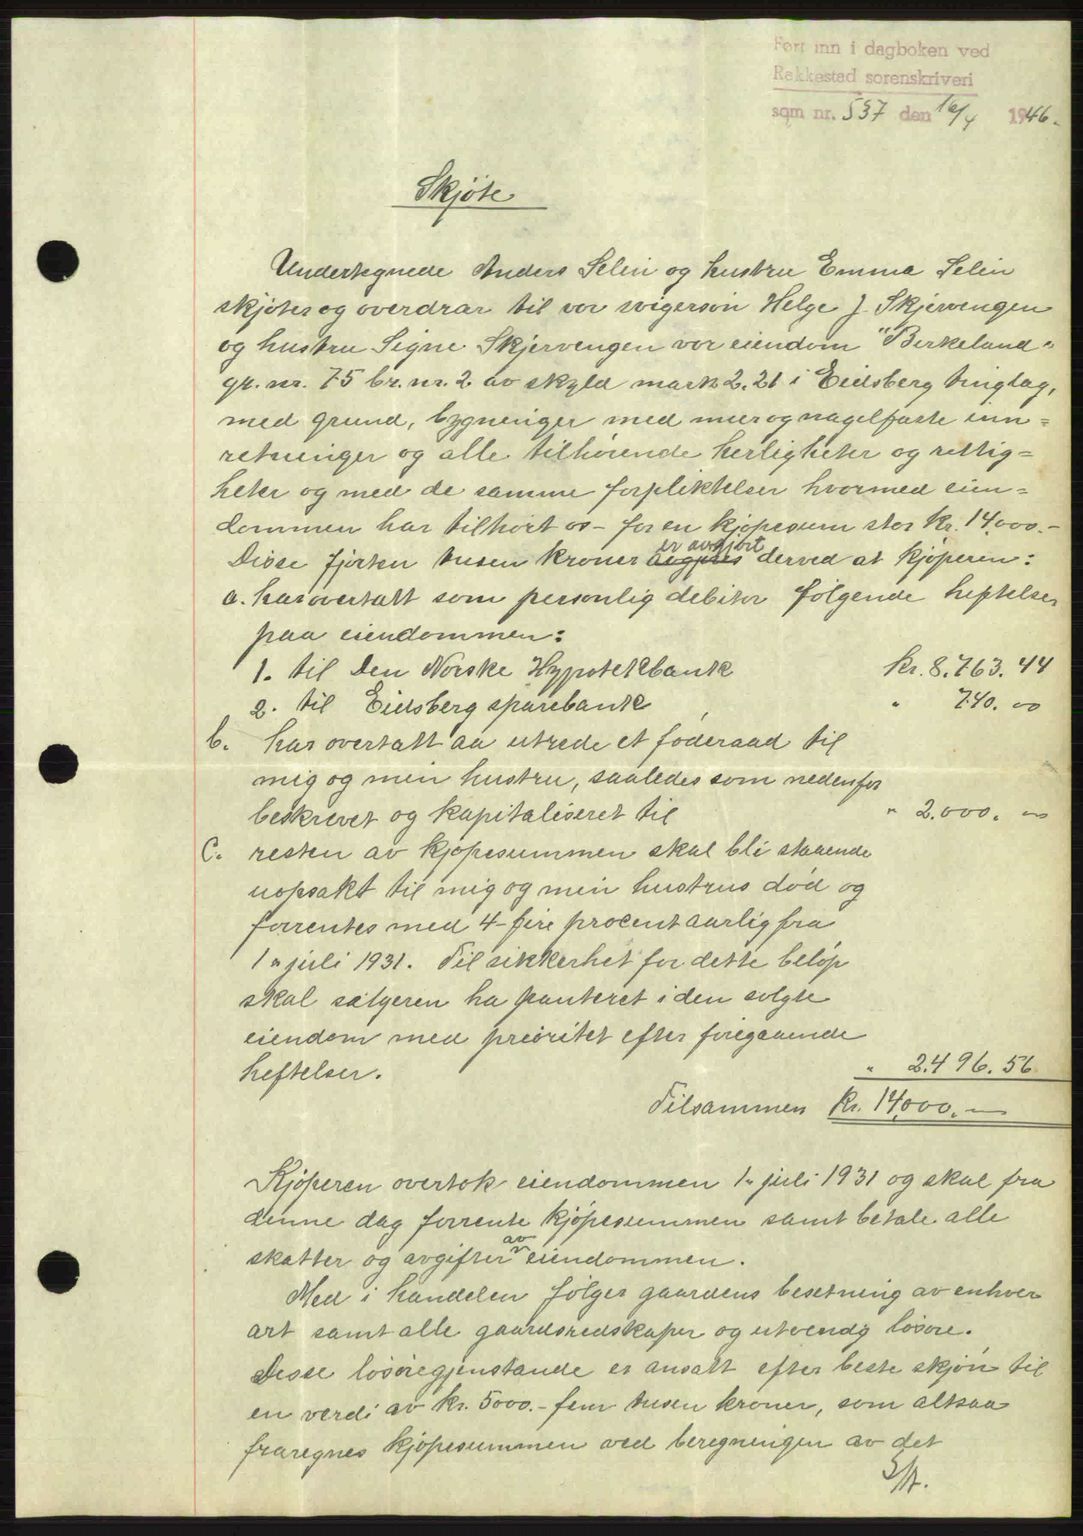 Ført inn i dagboken ved
Rakkestad sorenskriveri
som nr. 537 den 16/4 1946.
Skjøte
Undertegnede Anders Selin og hustru Emma Selin
skjøter og overdrar til vor svigersøn Helge J. Skjervengen
og hustru Signe Skjervengen vor eiendom "Birkeland"
gr. nr. 75 br. nr. 2 av skyld mark 2.21 i Eidsberg tinglag,
med grund, bygninger med mur og nagelfaste inn=
retninger og alle tilhørende herligheter og rettig=
heter og med de samme forpliktelser hvormed eien=
dommen har tilhørt os – for en kjøpesum stor kr. 14.000.-
er avgjort
Disse fjorten tusen kroner avgjøres derved at kjøperen:
a. har overtatt som personlig debitor følgende heftelser
paa eiendommen:
1. til Den Norske Hypotekbank kr. 8.763.44
2. til Eidsberg sparebank " 740.00
b. har overtatt aa utrede et føderaad til
mig og min hustru, saaledes som nedenfor
beskrevet og kapitaliseret til " 2.000. 00
C. resten av kjøpesummen skal bli staaende
uopsakt til mig og min hustrus død og
forrentes med 4 - fire procent aarlig fra
1" juli 1931. Til sikkerhet for dette beløp
skal sælgeren ha panteret i den solgte
eiendom med prioritet efter foregaaende
heftelser. " 2.496.56
Tilsammen kr. 14.000.—
Kjøperen overtok eiendommen 1" juli 1931 og skal fra
denne dag forrente kjøpesummen samt betale alle
av
skatter og avgifter eiendommen.
Med i handelen følger gaardens besetning av enhver
art samt alle gaardsredskaper og utvendg løsøre.
Disse løsøregjenstande er ansatt efter beste skjøn til
en verdi av kr. 5000.- fem tusen kroner, som altsaa
fraregnes kjøpesummen ved beregningen av det